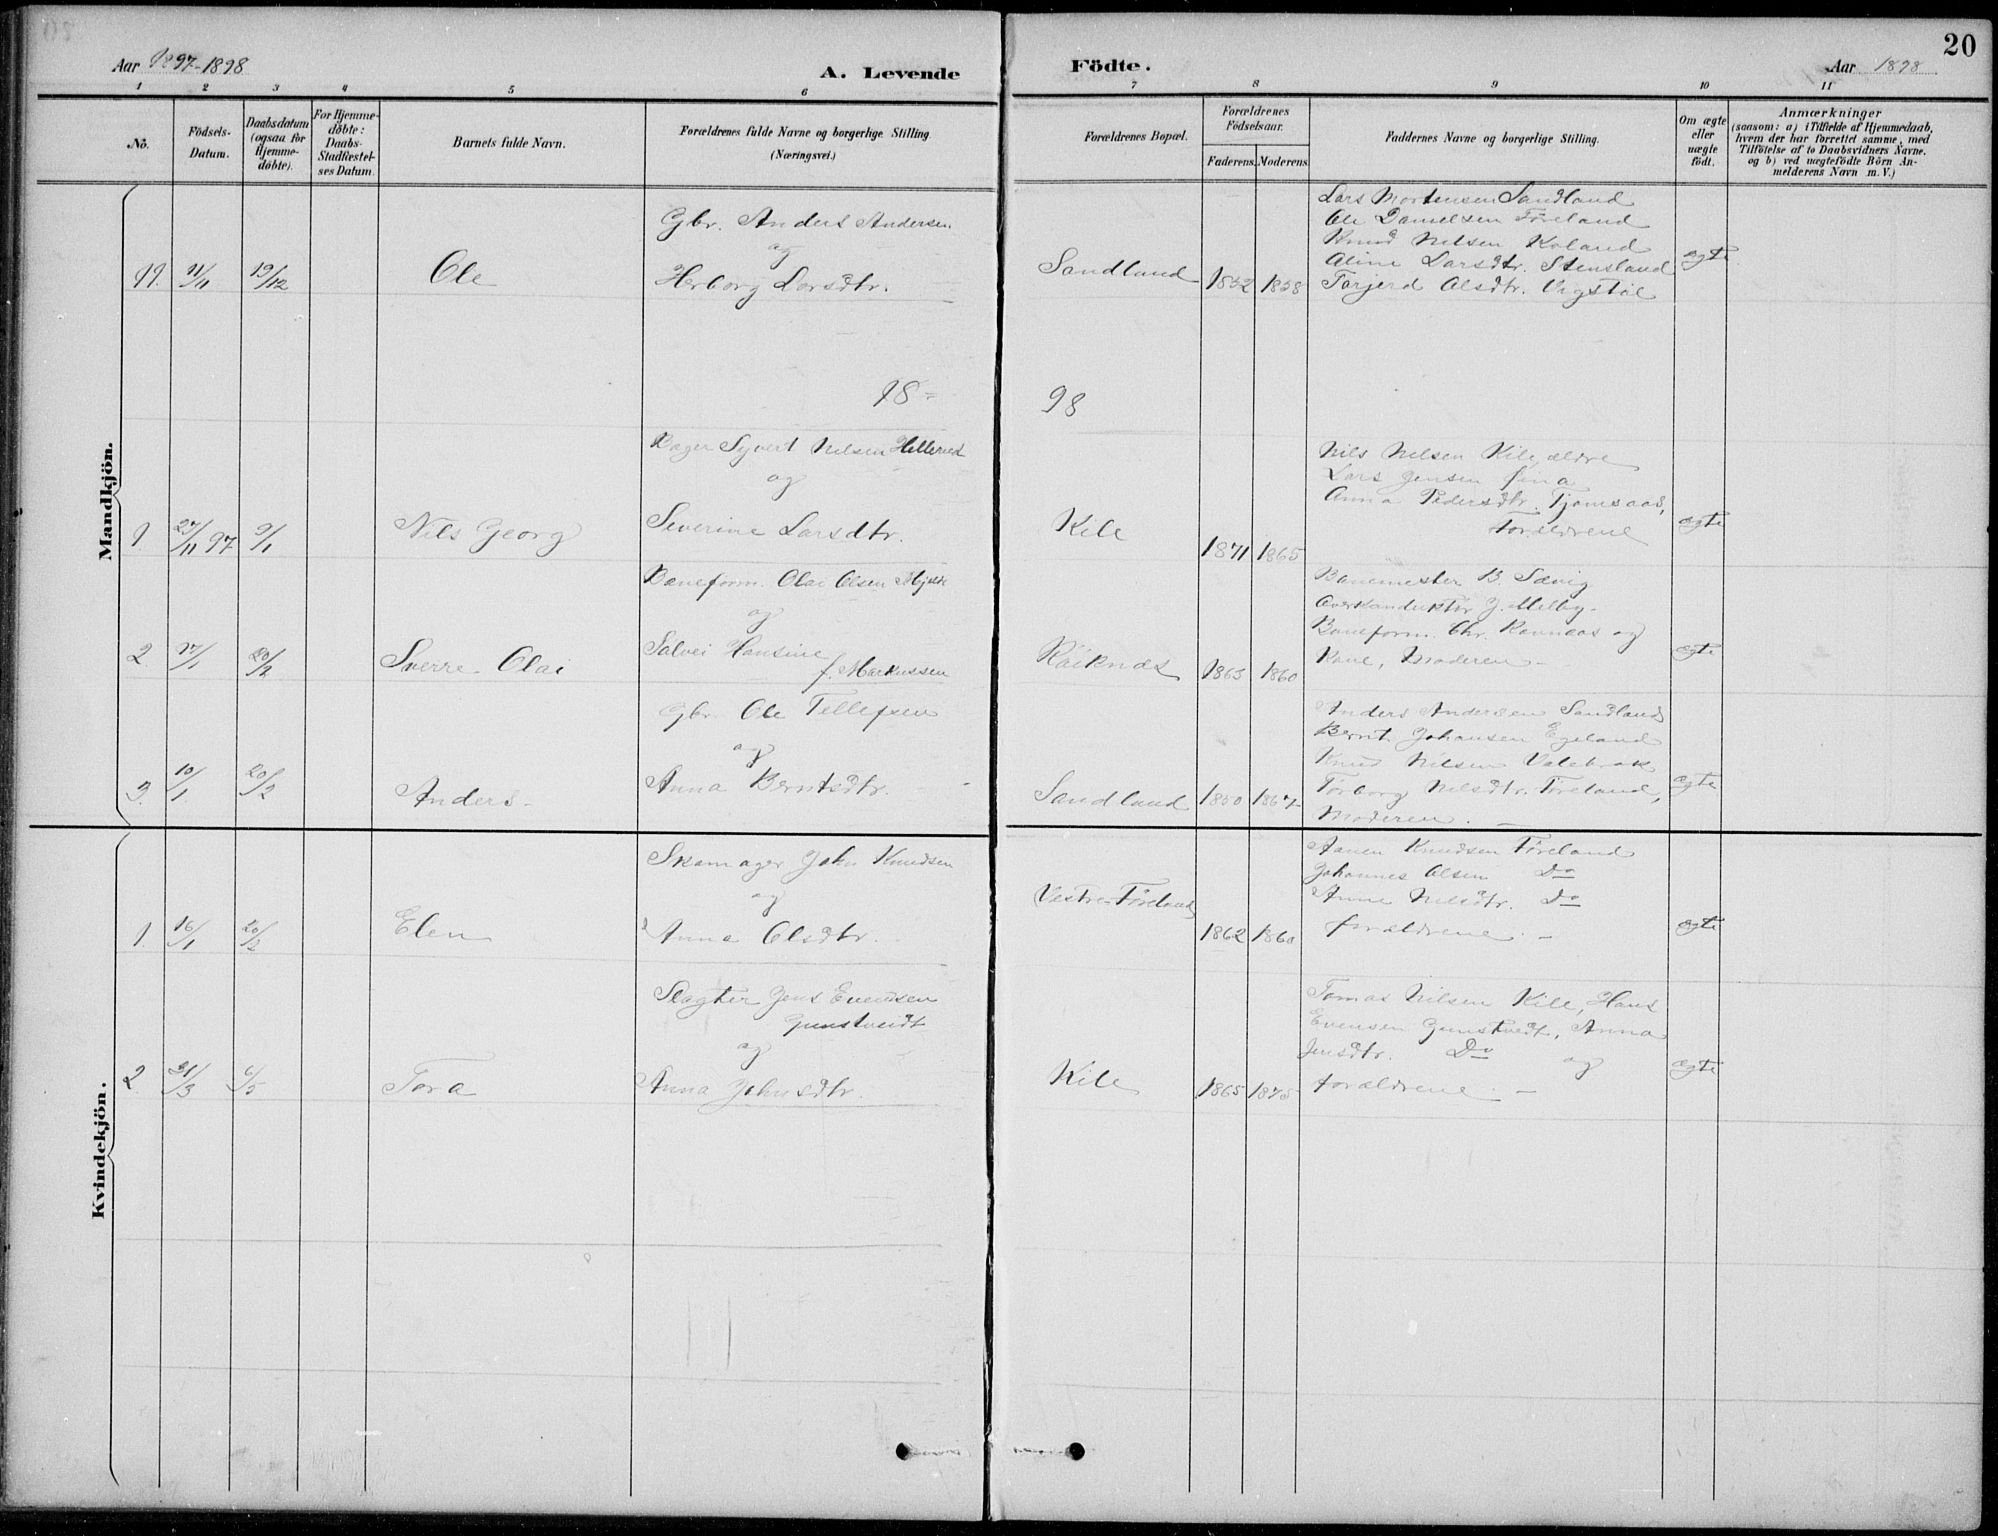 20
Aar 1897-1898
A. Levende
Födte.
Aar 1898
1 2 3 4 5 6 7 8 9 10 11
No.
Födsels-
Datum.
Daabsdatum
(ogsaa for
Hjemme-
døbte).
For Hjemme-
døbte:
Daabs-
Stadfæstel-
ses Datum.
Barnets fulde Navn.
Forældrenes fulde Navne og borgerlige Stilling.
(Næringsvei.)
Forældrenes Bopæl.
Forældrenes
Födselsaar.
Faderens. Moderens.
Faddernes Navne og borgerlige Stilling.
Om ægte
eller
uægte
født.
Anmærkninger
(saasom: a) i Tilfælde af Hjemmedaab,
hvem der har forrettet samme, med
Tilføielse af to Daabsvidners Navne.
og b) ved uægtefödte Börn An-
melderens Navn m. V.)
Mandkjön.
11. 11/11 19/12
Ole
Gbr. Anders Andersen
og
Herborg Larsdtr.
Sandland
1852 1858
Lars Mortensen Sandland
Ole Danielsen Føreland
Knud Nilsen Koland
Aline Larsdtr. Stensland
Torjerd Olsdtr.
ægte
98
98
1. 27/11 97 9/1
Nils Georg
Bager Syvert Nilsen Hellered
og
Severine Larsdtr.
Kile
1871 1865
Nils Nilsen Kile, ældre
Lars Jensen
Anna Pedersdtr. Tjomsaas,
forældrene
ægte
2. 17/1 20/2
Sverre Olai
Baneform. Olai Olsen
og
Salvei Hansine
f. Markussen
1863 1860
Banemester B. Sævig
Overkonduktør J. Melby
Baneform. Chr. og
Kone, Moderen
ægte
3. 10/1 20/2
Anders
Gbr. Ole Tellefsen
og
Anna Berntsdtr.
Sandland
1850 1867
Anders Andersen Sandland
Bernt Johansen Egeland
Knud Nilsen
Torborg Nilsdtr. Føreland,
Moderen.
ægte
Kvindekjön.
1. 16/1 20/2
Elen
Skomager John Knudsen
og
Anna Olsdtr.
Vestre Føreland
1862 1860
Aanen Knudsen Føreland
Johannes Olsen Do
Anne Nilsdtr. Do
forældrene.
ægte
2 31/3
Tora
Slagter Jens Evensen
Gunstveidt
og
Anna Johnsdtr.
Kile
1865 1875
Tomas Nilsen Kile, Hans
Evensen Gunstvedt, Anna
Jensdtr. Do og
forældrene.
ægte